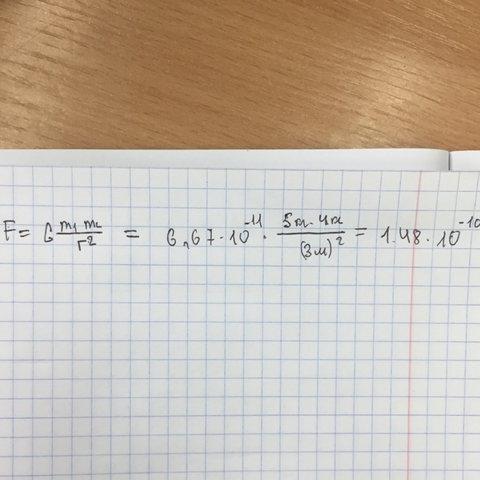 F = G m₁ m₂ / r² = 6,67 · 10⁻¹¹ · 5кг · 4кг / (3м)² = 1.48 · 10⁻¹⁰